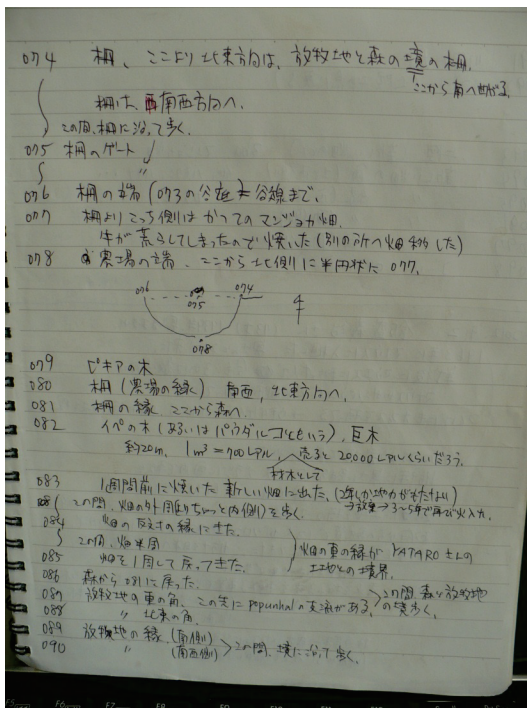 074 柵、ここより北東方向は、放牧地と森の境の柵.
ここから南へ曲がる.
柵は、南南西方向へ.
この間、柵に沿って歩く.
075 柵のゲート 〃
076 柵の端 (073の谷) 谷線まで.
077 柵よりこっち側はかつてのマンジョカ畑.
牛が荒らしてしまったので焼いた (別の所へ畑移した)
078 農場の端、ここから北側に半円状に077.
076 075 074
078
079 ピキアの木
080 柵 (農場の縁) 南西, 北東方向へ.
081 柵の縁 ここから森へ.
082 イペの木 (あるいはパウダルコともいう). 巨木
約20m. 1m³=700レアル, 売ると20,000レアルくらいだろう.
材木として
083 1週間前に焼いた新しい畑に出た. (2年しか地力がもたない)
→放棄→3~5年で再び火入れ.
この間、畑の外周(ちょっと内側)を歩く.
084 畑の反対の縁にきた.
この間, 畑半周
085 畑を1周して戻ってきた.
畑の東の縁がYATAROさんの土地との境界.
086 森から081に戻った.
087 放牧地の東の角. この先にpopunhalの支流がある.
088 〃 北東の角.
この間, 森と放牧地の境歩く.
089 放牧地の縁 (南側)
090 〃 (南西側)
この間、境に沿って歩く.
F5 F6 F7 F8 F9 F10 F11 F12